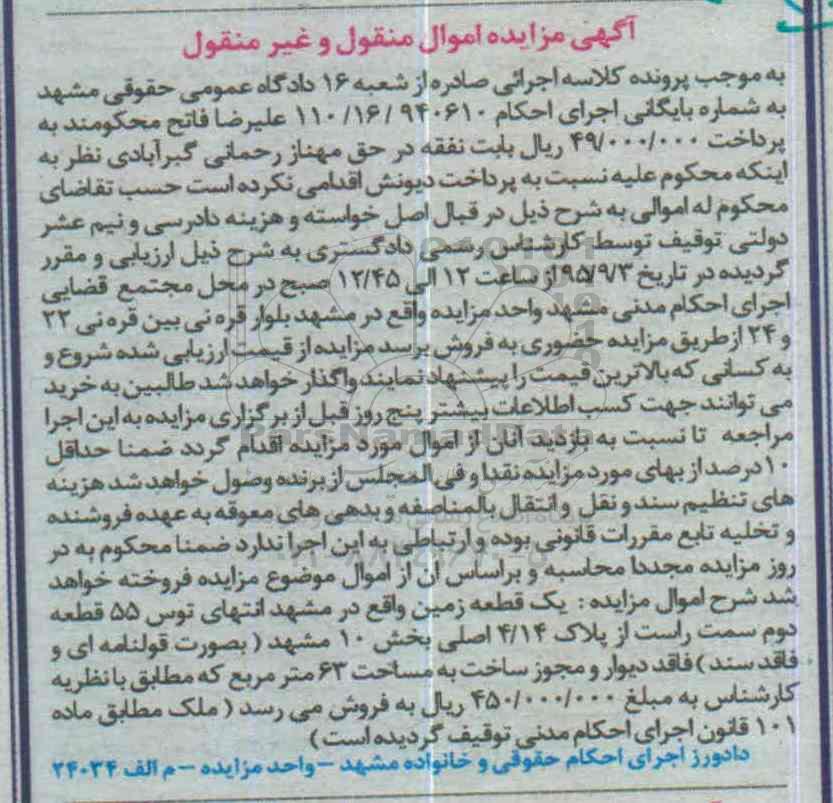 آگهی مزایده اموال منقول و غیر منقول
به موجب پرونده کلاسه اجرائی صادره از شعبه ۱۶ دادگاه عمومی حقوقی مشهد
به شماره بایگانی اجرای احکام ۹۴۰۶۱۰ /۱۶/ ۱۱۰ علیرضا فاتح محکومند به
پرداخت ۴۹/۰۰۰/۰۰۰ ریال بابت نفقه در حق مهناز رحمانی گبرآبادی نظر به
اینکه محکوم علیه نسبت به پرداخت دیونش اقدامی نکرده است حسب تقاضای
محکوم له اموالی به شرح ذیل در قبال اصل خواسته و هزینه دادرسی و نیم عشر
دولتی توقیف توسط کارشناس رسمی دادگستری به شرح ذیل ارزیابی و مقرر
گردیده در تاریخ ۹۵/۹/۳ از ساعت ۱۲ الی ۱۲/۴۵ صبح در محل مجتمع قضایی
اجرای احکام مدنی مشهد واحد مزایده واقع در مشهد بلوار قره نی بین قره نی ۲۲
و ۲۴ ازطریق مزایده حضوری به فروش برسد مزایده از قیمت ارزیابی شده شروع و
به کسانی که بالاترین قیمت را پیشنهاد نمایند واگذار خواهد شد طالبین به خرید
می توانند جهت کسب اطلاعات بیشتر پنج روز قبل از برگزاری مزایده به این اجرا
مراجعه تا نسبت به بازدید آنان از اموال مورد مزایده اقدام گردد ضمنا حداقل
۱۰درصد از بهای مورد مزایده نقدا و فی المجلس از برنده وصول خواهد شد هزینه
های تنظیم سند و نقل و انتقال بالمناصفه و بدهی های معوقه به عهده فروشنده
و تخلیه تابع مقررات قانونی بوده و ارتباطی به این اجرا ندارد ضمنا محکوم به در
روز مزایده مجددا محاسبه و براساس آن از اموال موضوع مزایده فروخته خواهد
شد شرح اموال مزایده : یک قطعه زمین واقع در مشهد انتهای توس ۵۵ قطعه
دوم سمت راست از پلاک ۴/۱۴ اصلی بخش ۱۰ مشهد ( بصورت قولنامه ای و
فاقد سند ) فاقد دیوار و مجوز ساخت به مساحت ۶۳ متر مربع که مطابق با نظریه
کارشناس به مبلغ ۴۵۰/۰۰۰/۰۰۰ ریال به فروش می رسد ( ملک مطابق ماده
۱۰۱ قانون اجرای احکام مدنی توقیف گردیده است )
دادورز اجرای احکام حقوقی و خانواده مشهد – واحد مزایده – م الف ۲۴۰۳۴
ParsNamadData